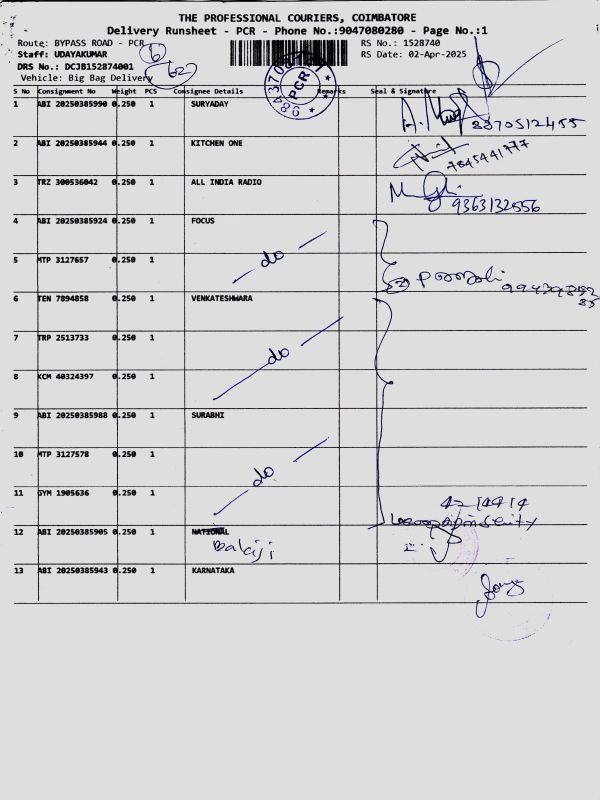 THE PROFESSIONAL COURIERS, COIMBATORE
Delivery Runsheet - PCR - Phone No.:9047080280 - Page No.:1
Route: BYPASS ROAD - PCR RS No.: 1528740
Staff: UDAYAKUMAR RS Date: 02-Apr-2025
DRS No.: DCJB152874001
Vehicle: Big Bag Delivery
6
62
PCR
S No Consignment No Weight PCS Consignee Details Remarks Seal & Signature
1 ABI 20250385990 0.250 1 SURYADAY
8870512455
2 ABI 20250385944 0.250 1 KITCHEN ONE
7845441777
3 TRZ 300536042 0.250 1 ALL INDIA RADIO
9363132556
4 ABI 20250385924 0.250 1 FOCUS
5 MTP 3127657 0.250 1 do
6 TEN 7894858 0.250 1 VENKATESHWARA
7 TRP 2513733 0.250 1 do
8 KCM 40324397 0.250 1
9 ABI 20250385988 0.250 1 SURABHI
10 MTP 3127578 0.250 1 do
11 GYM 1905636 0.250 1
12 ABI 20250385905 0.250 1 NATIONAL
Balaji
13 ABI 20250385943 0.250 1 KARNATAKA